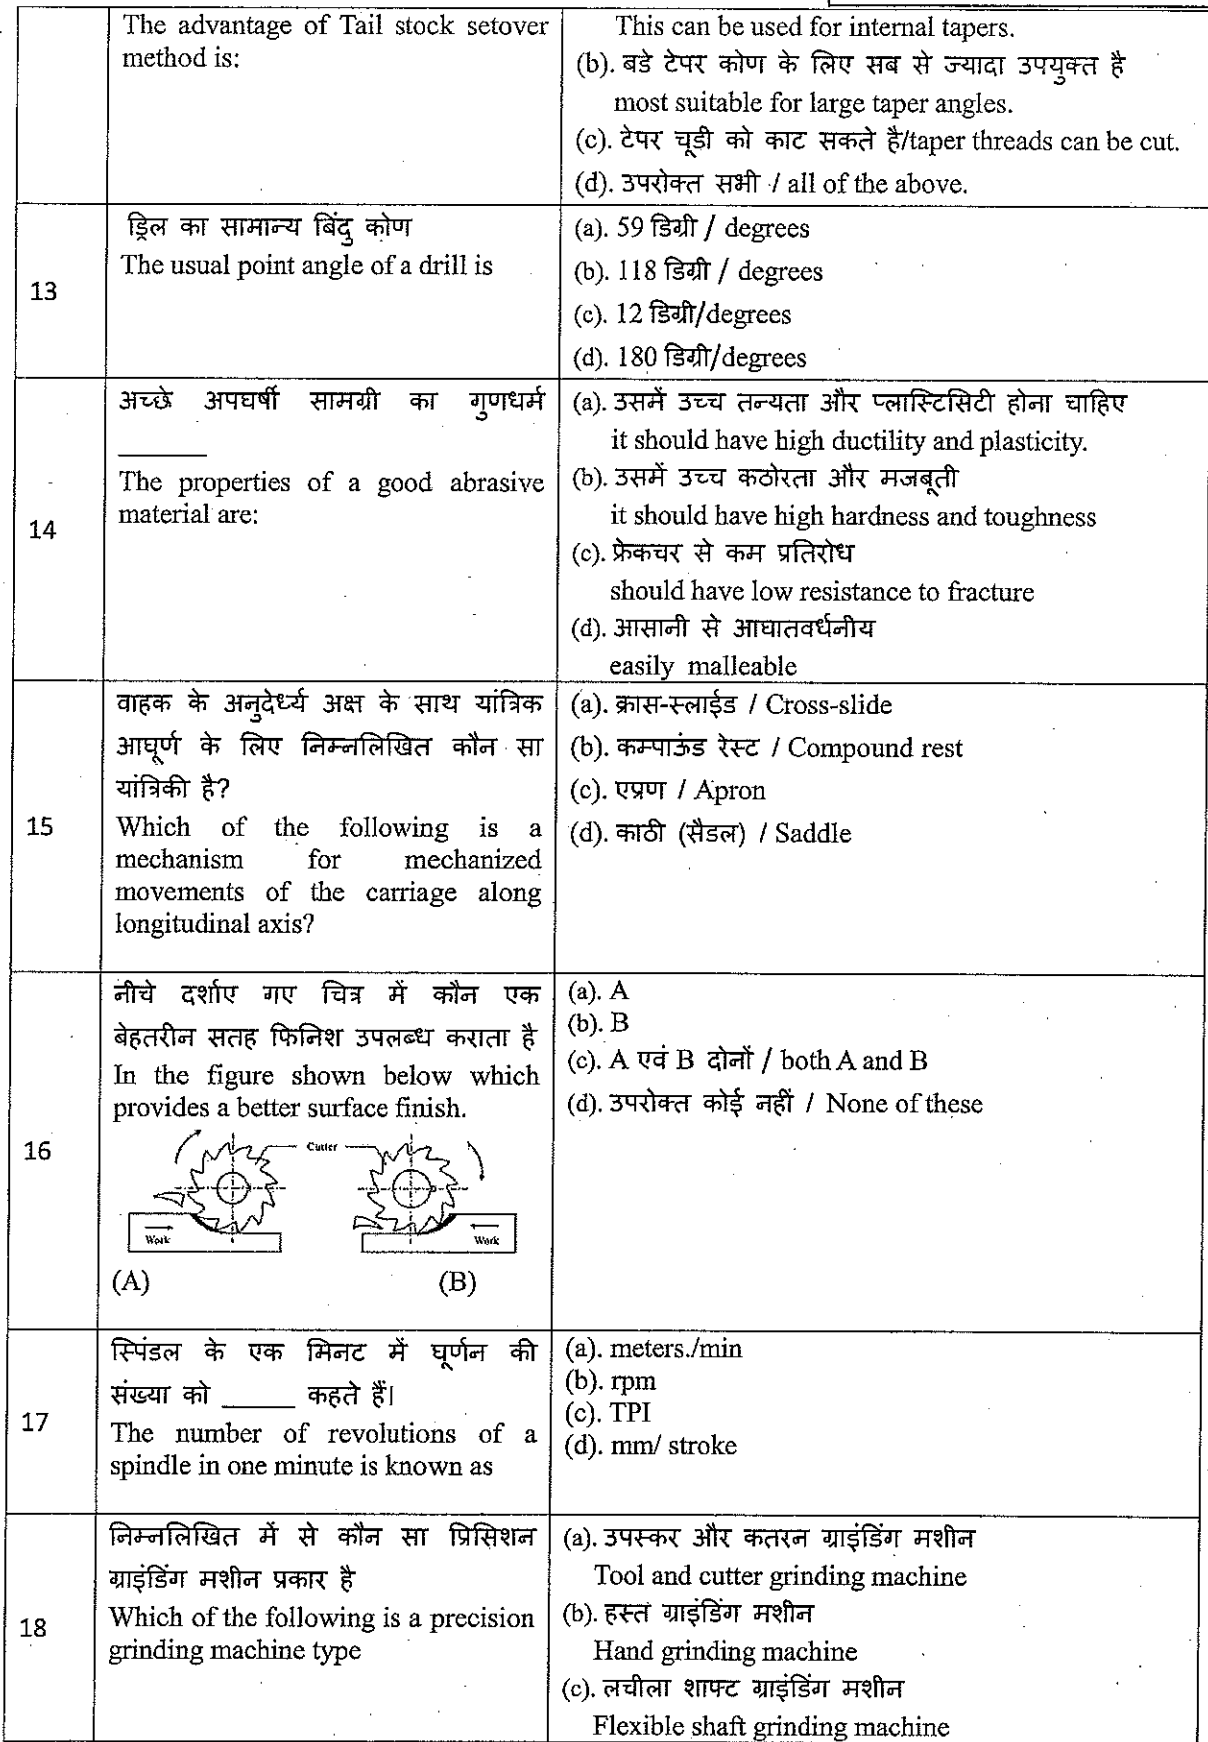 The advantage of Tail stock setover
method is:
This can be used for internal tapers.
(b). बडे टेपर कोण के लिए सब से ज्यादा उपयुक्त है
most suitable for large taper angles.
(c). टेपर चूड़ी को काट सकते है/taper threads can be cut.
(d). उपरोक्त सभी / all of the above.
13
ड्रिल का सामान्य बिंदु कोण
The usual point angle of a drill is
(a). 59 डिग्री / degrees
(b). 118 डिग्री / degrees
(c). 12 डिग्री/degrees
(d). 180 डिग्री/degrees
14
अच्छे अपघर्षी सामग्री का गुणधर्म
______
The properties of a good abrasive
material are:
(a). उसमें उच्च तन्यता और प्लास्टिसिटी होना चाहिए
it should have high ductility and plasticity.
(b). उसमें उच्च कठोरता और मजबूती
it should have high hardness and toughness
(c). फ्रेकचर से कम प्रतिरोध
should have low resistance to fracture
(d). आसानी से आघातवर्धनीय
easily malleable
15
वाहक के अनुदेर्ध्य अक्ष के साथ यांत्रिक
आघूर्ण के लिए निम्नलिखित कौन सा
यांत्रिकी है?
Which of the following is a
mechanism for mechanized
movements of the carriage along
longitudinal axis?
(a). क्रास-स्लाईड / Cross-slide
(b). कम्पाऊंड रेस्ट / Compound rest
(c). एप्रण / Apron
(d). काठी (सैडल) / Saddle
16
नीचे दर्शाए गए चित्र में कौन एक
बेहतरीन सतह फिनिश उपलब्ध कराता है
In the figure shown below which
provides a better surface finish.
Cutter
Work
Work
(A) (B)
(a). A
(b). B
(c). A एवं B दोनों / both A and B
(d). उपरोक्त कोई नहीं / None of these
17
स्पिंडल के एक मिनट में घूर्णन की
संख्या को _____ कहते हैं।
The number of revolutions of a
spindle in one minute is known as
(a). meters./min
(b). rpm
(c). TPI
(d). mm/ stroke
18
निम्नलिखित में से कौन सा प्रिसिशन
ग्राइंडिंग मशीन प्रकार है
Which of the following is a precision
grinding machine type
(a). उपस्कर और कतरन ग्राइंडिंग मशीन
Tool and cutter grinding machine
(b). हस्त ग्राइंडिंग मशीन
Hand grinding machine
(c). लचीला शाफ्ट ग्राइंडिंग मशीन
Flexible shaft grinding machine